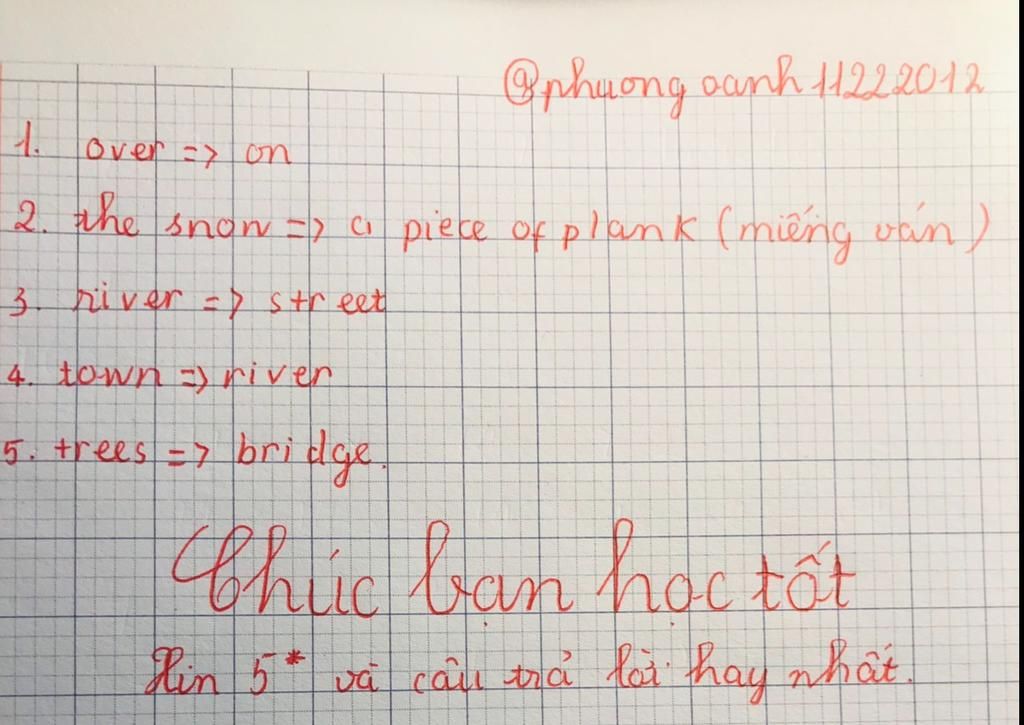 @phuong oanh 11222012
1. over => on
2. the snow => a piece of plank (miếng ván)
3. river => street
4. town => river
5. trees => bridge.
Chúc bạn học tốt
Xin 5* và câu trả lời hay nhất.